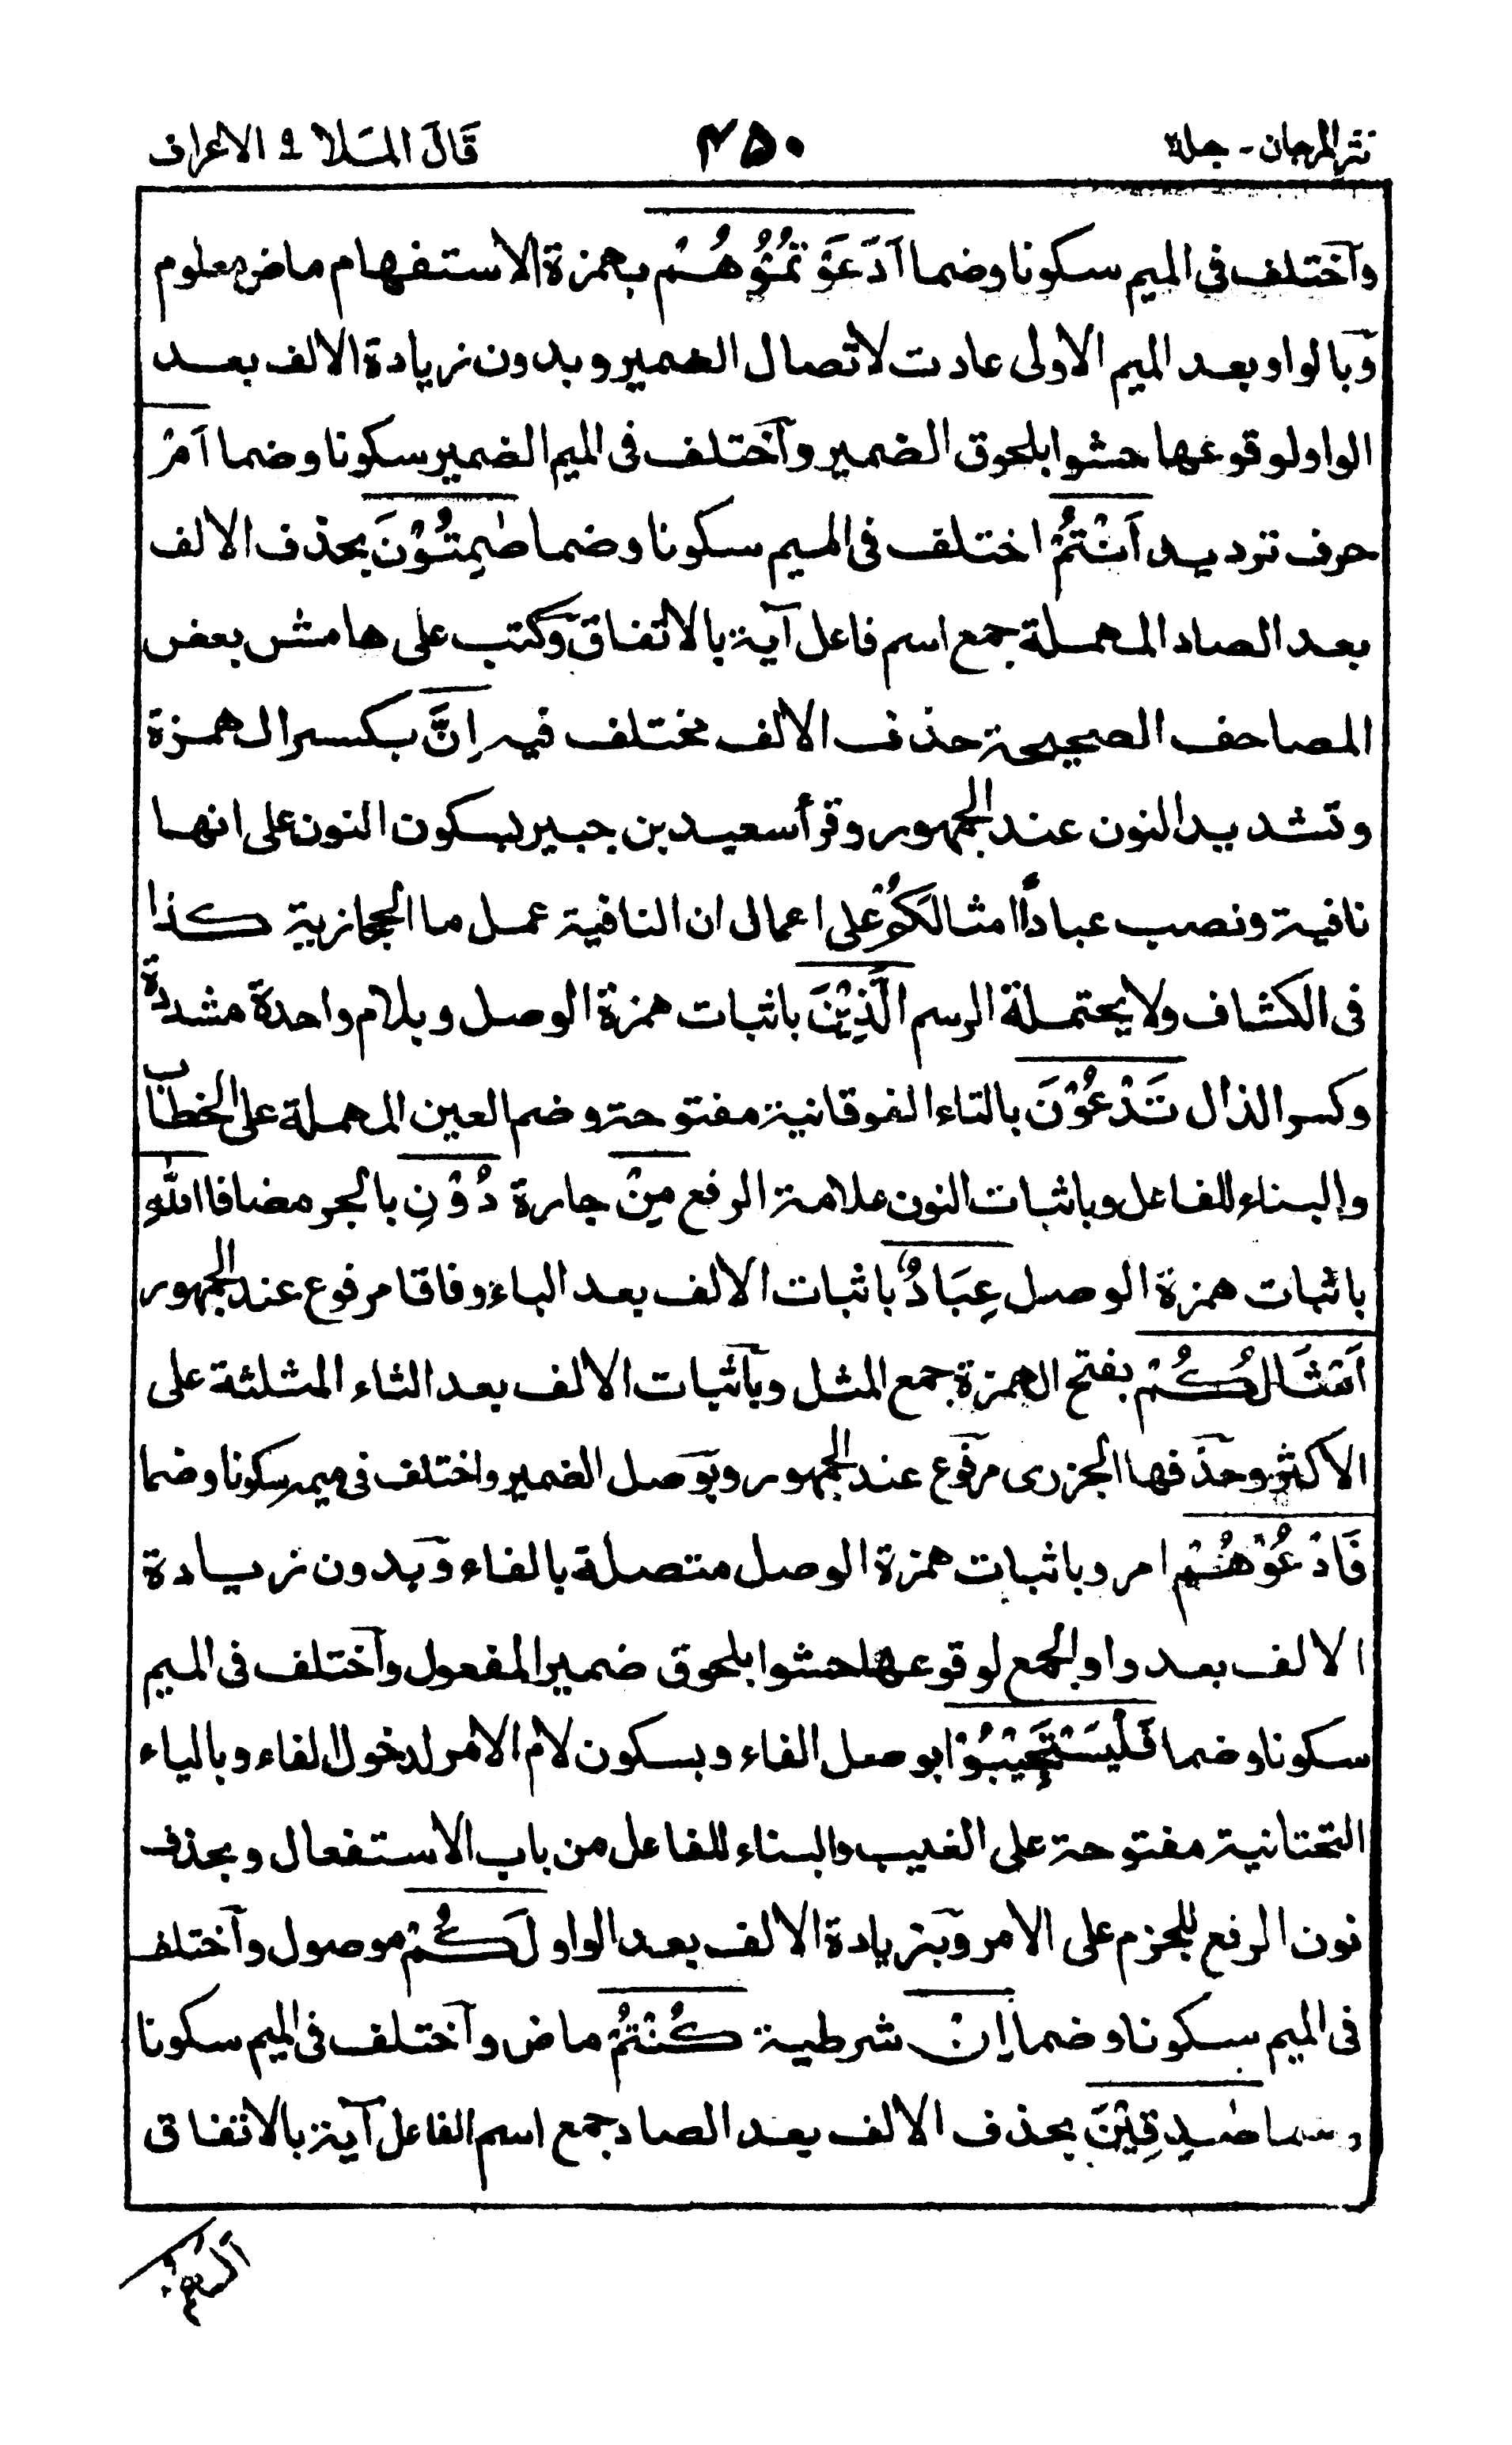 نثر المرجان - جلد٢
۴۵۰
قَالَ المَلا ٩ الاعراف
وآختلف فى الميم سكونا وضما اَدَعَوْتُمُوْهُمْ بهمزة الاستفهام ماض معلوم
وَبالواو بعد الميم الاولى عادت لاتصال الضمير و بدون زيادة الالف بعد
الواو لوقوعها حشوا بلحوق الضمير وآختلف فى الميم الضمير سكونا وضما اَمْ
حرف ترديد اَنْتُمْ اختلف فى الميم سكونا وضما صٰمِتُوْنَ بحذف الالف
بعد الصاد المهملة جمع اسم فاعل آية بالاتفاق وكتب على هامش بعض
المصاحف الصحيحة حذف الالف مختلف فيه اِنَّ بكسر الهمزة
وتشديد النون عند الجمهور وقرأ سعيد بن جبير بسكون النون على انها
نافية ونصب عباداً امثالَكُمْ على اعمال ان النافية عمل ما الحجازية كذا
فى الكشاف ولا يحتمله الرسم الَّذِيْنَ باثبات همزة الوصل وبلام واحدة مشددة
وكسر الذال تَدْعُوْنَ بالتاء الفوقانية مفتوحة وضم العين المهملة على الخطاب
والبناء للفاعل وباثبات النون علامة الرفع مِنْ جارة دُوْنِ بالجر مضافا اللّٰهِ
باثبات همزة الوصل عِبَادٌ باثبات الالف بعد الباء وفاقا مرفوع عند الجمهور
اَمْثَالُكُمْ بفتح الهمزة جمع المثل وبآثبات الالف بعد الثاء المثلثة على
الاكثر وحذفها الجزرى مرفوع عند الجمهور وبوصل الضمير واختلف فى ميمه سكونا وضما
فَادْعُوْهُمْ امر وباثبات همزة الوصل متصلة بالفاء وَبدون زيادة
الالف بعد واو الجمع لوقوعها حشوا بلحوق ضمير المفعول وآختلف فى الميم
سكونا وضما فَلْيَسْتَجِيْبُوْا بوصل الفاء وبسكون لام الامر لدخول الفاء وبالياء
التحتانية مفتوحة على الغيب والبناء للفاعل من باب الاستفعال وبحذف
نون الرفع للجزم على الامر وَبزيادة الالف بعد الواو لَكُمْ موصول وآختلف
فى الميم سكونا وضما اِنْ شرطية كُنْتُمْ ماض وآختلف فى الميم سكونا
وضما صٰدِقِيْنَ بحذف الالف بعد الصاد جمع اسم الفاعل آية بالاتفاق